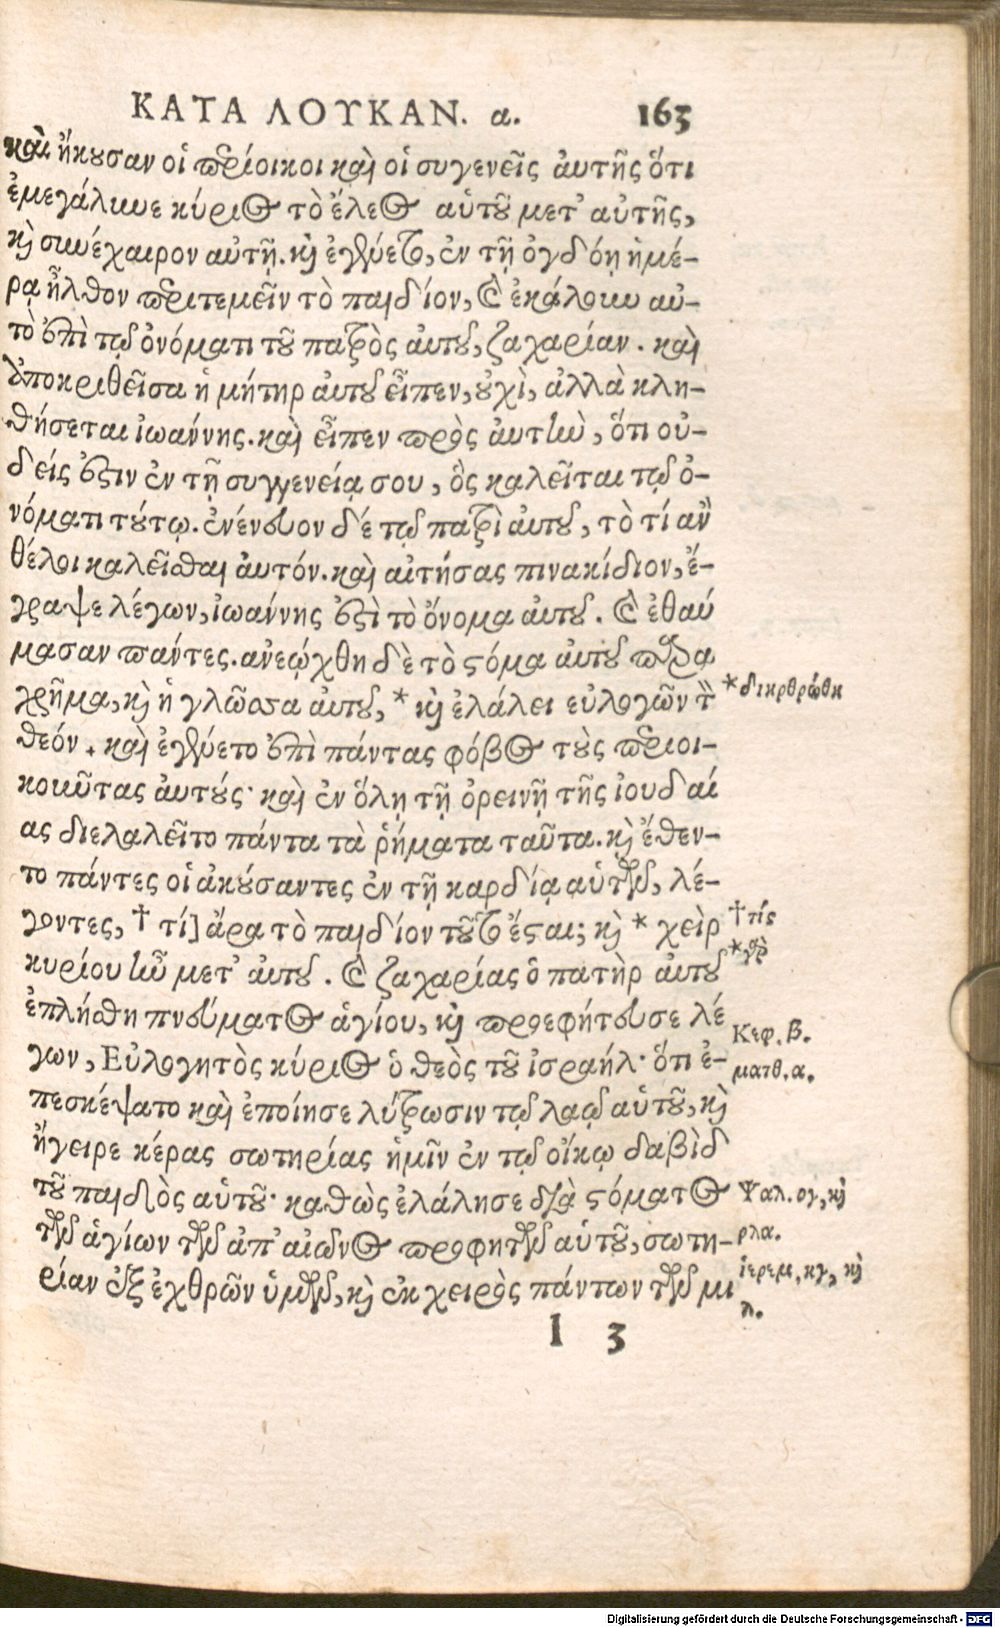 ΚΑΤΑ ΛΟΥΚΑΝ. α. 163
καὶ ἤκουσαν οἱ περίοικοι καὶ οἱ συγενεῖς ἀυτῆς ὅτι
ἐμεγάλυνε κύριος τὸ ἔλεος αὑτοῦ μετ' αὐτῆς,
καὶ συνέχαιρον αὐτῇ. καὶ ἐγένετο, ἐν τῇ ὀγδόῃ ἡμέ-
ρᾳ ἦλθον περιτεμεῖν τὸ παιδίον, καὶ ἐκάλουν αὐ-
τὸ ἐπὶ τῷ ὀνόματι τοῦ πατρὸς ἀυτοῦ, ζαχαρίαν. καὶ
ἀποκριθεῖσα ἡ μήτηρ ἀυτοῦ εἶπεν, οὐχὶ, ἀλλὰ κλη-
θήσεται ἰωάννης. καὶ εἶπεν πρὸς ἀυτὴν, ὅτι οὐ-
δείς ἐστιν ἐν τῇ συγγενείᾳ σου, ὃς καλεῖται τῷ ὀ-
νόματι τούτῳ. ἐνένευον δέ τῷ πατρὶ ἀυτοῦ, τὸ τί ἂν
θέλοι καλεῖσθαι ἀυτόν. καὶ αἰτήσας πινακίδιον, ἔ-
γραψε λέγων, ἰωάννης ἐστὶ τὸ ὄνομα ἀυτοῦ. καὶ ἐθαύ
μασαν πάντες. ἀνεῴχθη δὲ τὸ στόμα ἀυτοῦ παρα
χρῆμα, καὶ ἡ γλῶσσα ἀυτοῦ, * καὶ ἐλάλει εὐλογῶν τὸν
* διηρθρώθη
θεόν. καὶ ἐγένετο ἐπὶ πάντας φόβος τοὺς περιοι-
κοῦντας ἀυτούς· καὶ ἐν ὅλῃ τῇ ὀρεινῇ τῆς ἰουδαί
ας διελαλεῖτο πάντα τὰ ῥήματα ταῦτα. καὶ ἔθεν-
το πάντες οἱ ἀκούσαντες ἐν τῇ καρδίᾳ αὑτῶν, λέ-
γοντες, † τί] ἄρα τὸ παιδίον τοῦτο ἔσται; καὶ * χεὶρ
† τίς
* γὰρ
κυρίου ἦν μετ' ἀυτοῦ. καὶ ζαχαρίας ὁ πατὴρ ἀυτοῦ
ἐπλήσθη πνεύματος ἁγίου, καὶ προεφήτευσε λέ
γων, Εὐλογητὸς κύριος ὁ θεὸς τοῦ ἰσραήλ· ὅτι ἐ-
Κεφ. β.
ματθ. α.
πεσκέψατο καὶ ἐποίησε λύτρωσιν τῷ λαῷ αὑτοῦ, καὶ
ἤγειρε κέρας σωτηρίας ἡμῖν ἐν τῷ οἴκῳ δαβὶδ
τοῦ παιδὸς αὑτοῦ· καθὼς ἐλάλησε διὰ στόματος
Ψαλ. ογ, καὶ
ρλα.
τῶν ἁγίων τῶν ἀπ' αἰῶνος προφητῶν αὑτοῦ, σωτη-
ρίαν ἐξ ἐχθρῶν ἡμῶν, καὶ ἐκ χειρὸς πάντων τῶν μι
ἱερεμ. κγ, καὶ
λ.
I 3
Digitalisierung gefördert durch die Deutsche Forschungsgemeinschaft - DFG